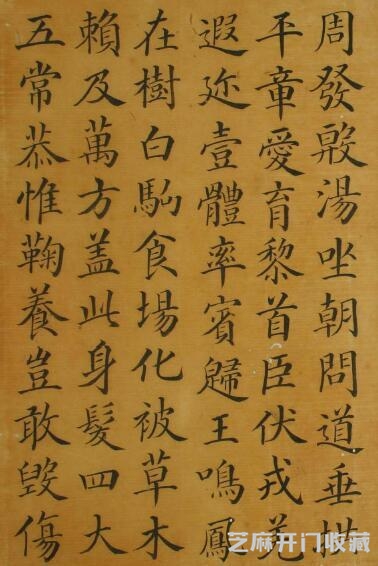 周發殷湯坐朝問道垂拱
平章愛育黎首臣伏戎羌
遐迩壹體率賓歸王鳴鳳
在樹白駒食場化被草木
賴及萬方盖此身髮四大
五常恭惟鞠養豈敢毀傷
芝麻开门收藏